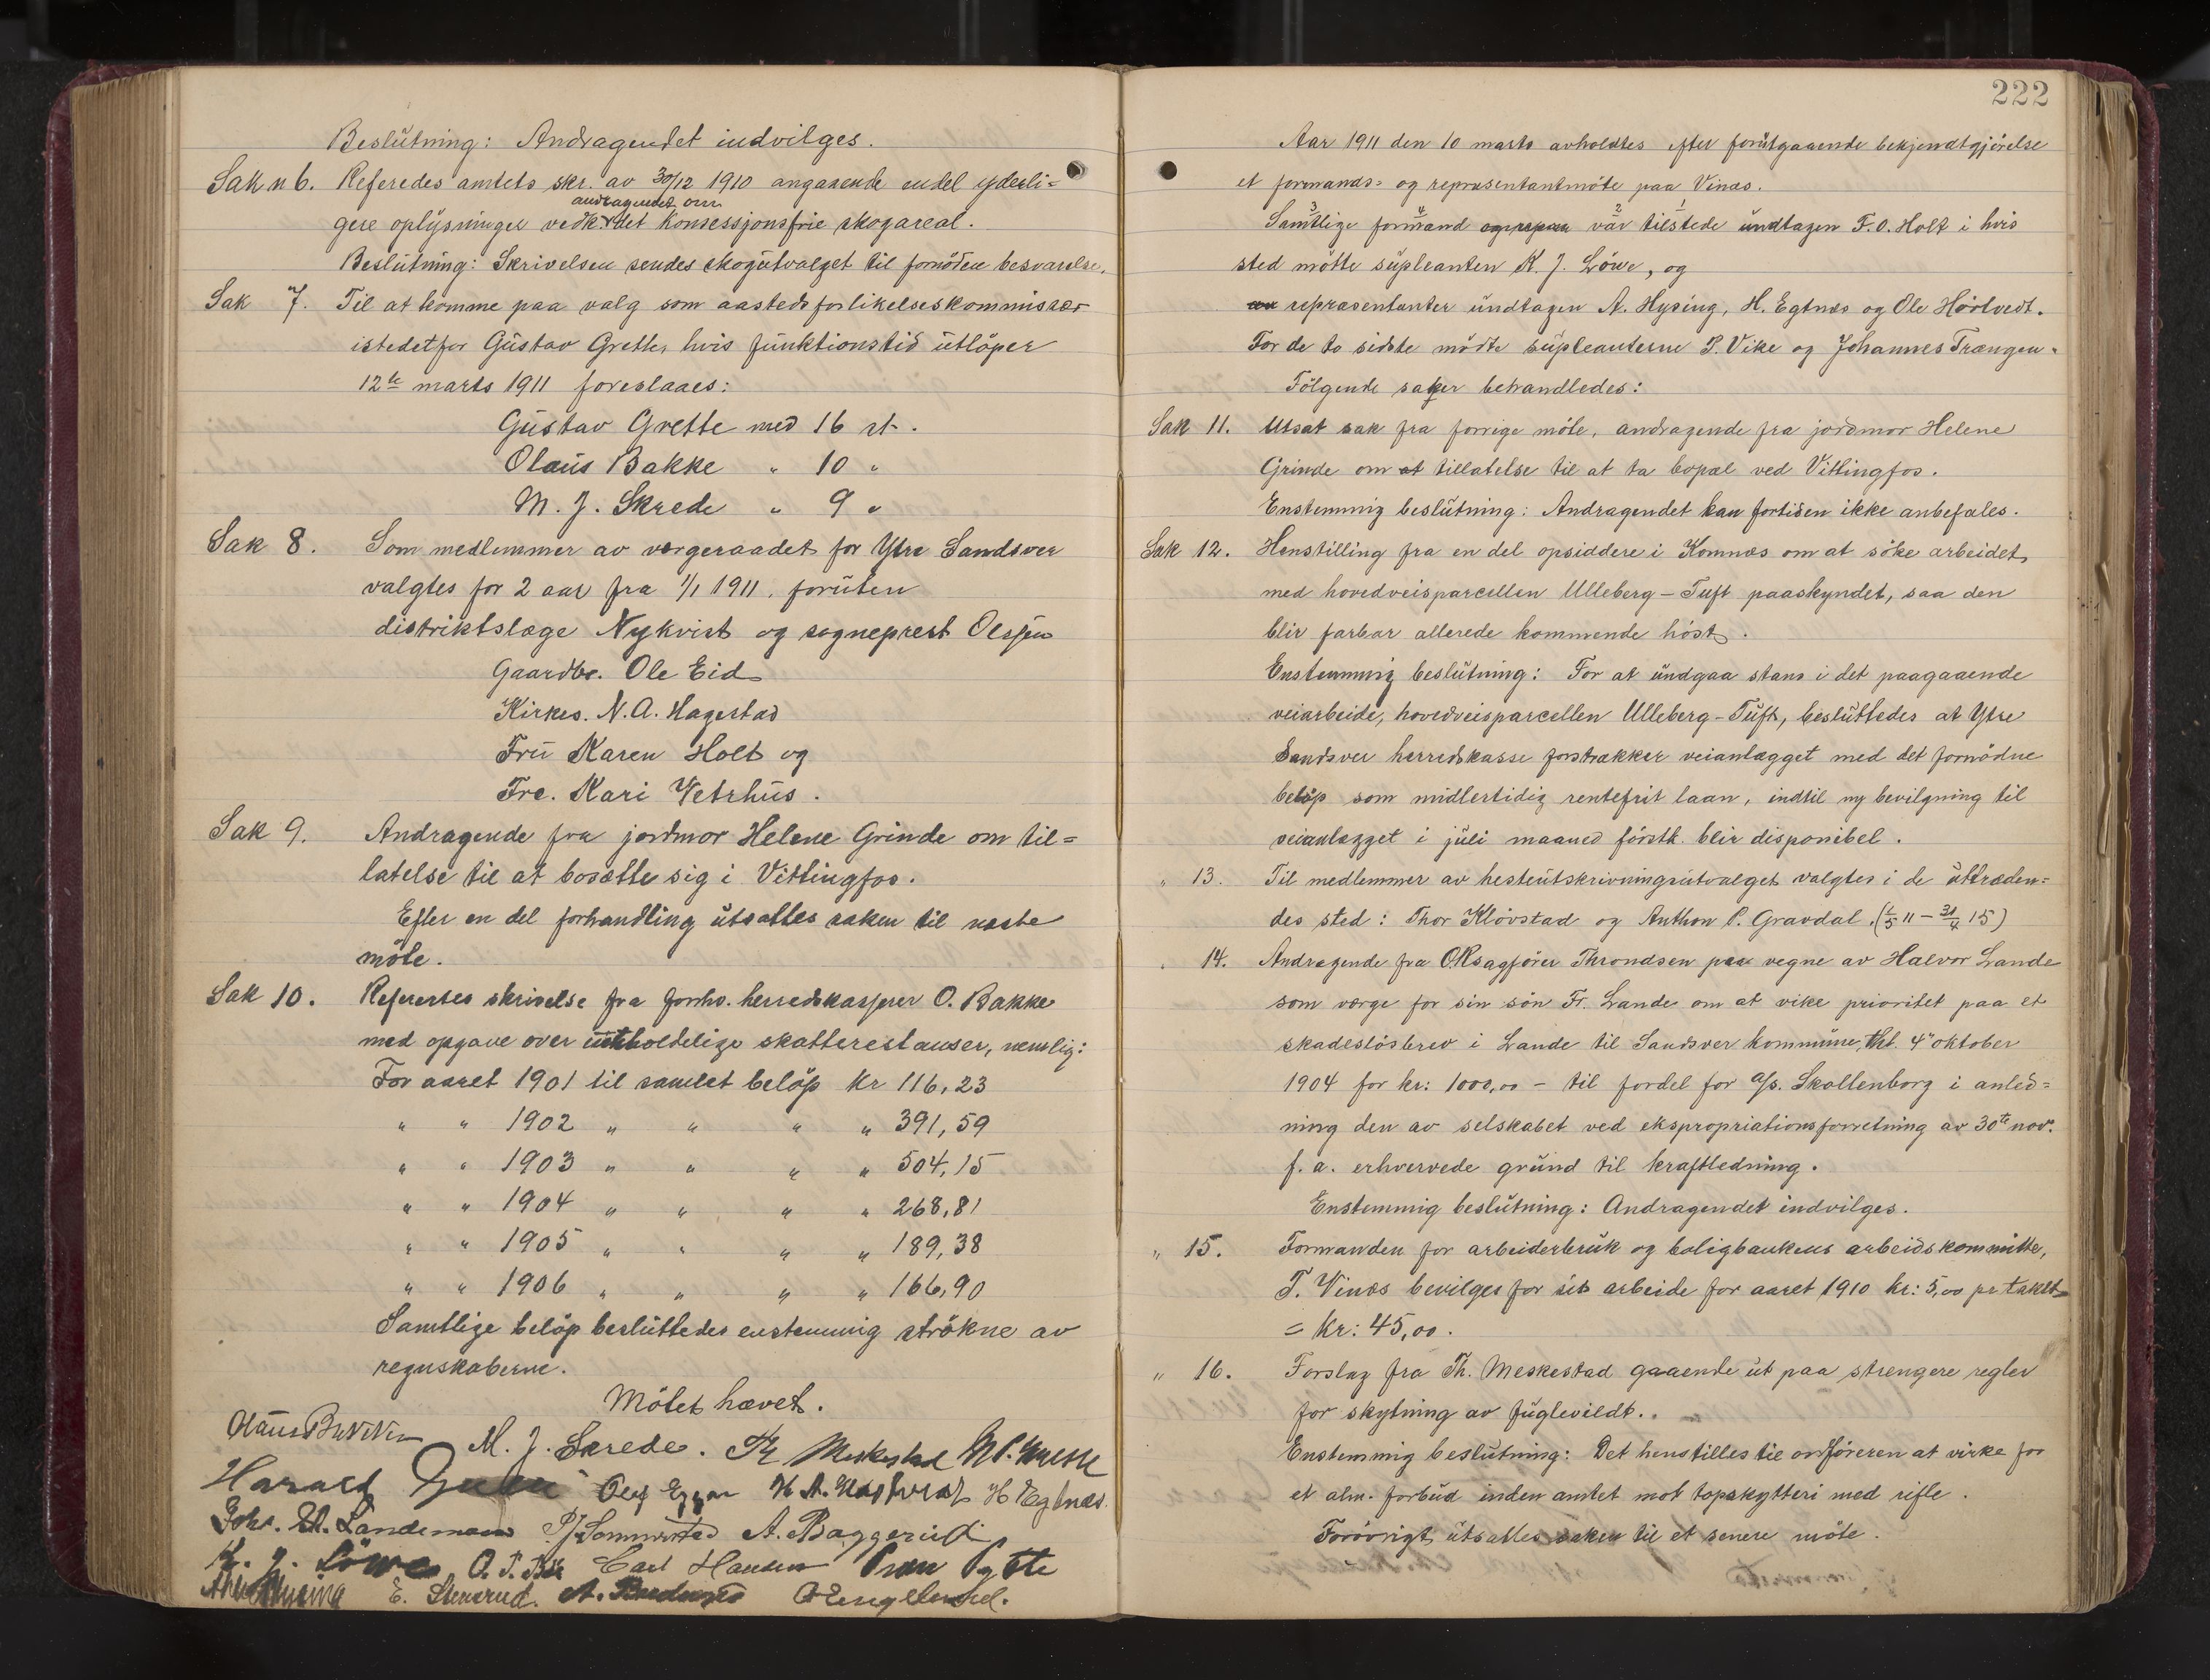 Beslutning: Andragendet indvilges.
Sak n 6. Referedes amtets skr. av 30/12 1910 angaaende endel yderli=
andragendet om
gere oplysninger vedk. det konsessjonsfrie skogareal.
Beslutning: Skrivelsen sendes skogutvalget til fornöden besvarelse.
Sak 7. Til at komme paa valg som aastedsforlikelseskommissær
istedetfor Gustav Grette, hvis funktionstid utlöper
12te marts 1911 foreslaaes:
Gustav Grette med 16 st.
Olaus Bakke " 10 "
M. J. Skrede " 9 "
Sak 8. Som medlemmer av vergeraadet for Ytre Sandsver
valgtes for 2 aar fra 1/1 1911, foruten
distriktslæge Nykvist og sogneprest Olssen
Gaardbr. Ole Eid
Kirkes. N. A. Hagestad
Fru Karen Holt og
Frc. Kari Vetrhus.
Sak 9. Andragende fra jordmor Helene Grinde om til=
latelse til at bosætte sig i Vittingfos.
Efter en del forhandling utsattes saken til næste
möte.
Sak 10. Referertes skrivelse fra forhv. herredskasserer O. Bakke
med opgave over uerholdelige skatterestanser, nemlig:
For aaret 1901 til samlet belöp kr 116,23
" " 1902 " " " " 391,59
" " 1903 " " " " 504,15
" " 1904 " " " " 268,81
" " 1905 " " " " 189,38
" " 1906 " " " " 166,90
Samtlige belöp besluttedes enstemmig strökne av
regnskaberne.
Mötet hævet.
Olaus Bakken M. J. Skrede. Th Meskestad
Harald Olaf H Egtnæs.
Joh. Landemoen P. Sommerstad A. Baggerud
K. J. Löwe O. T. Carl Hansen
Hysing E. Stensrud. A.
222
Aar 1911 den 10 marts avholdtes efter forutgaaende bekjendtgjörelse
et formands- og repræsentantmöte paa Vinæs.
Samtlige formænd og repræs var tilstede undtagen F. O. Holt i hvis
sted mötte supleanten K. J. Löwe, og
repræsentanter undtagen A. Hysing, H. Egtnæs og Ole Hörtvedt.
For de to sidste mödte supleanterne P. Vike og Johannes Trængen.
Fölgende saker behandledes:
Sak 11. Utsat sak fra forrige möte, andragende fra jordmor Helene
Grinde om at tillatelse til at ta bopæl ved Vittingfos.
Enstemmig beslutning: Andragendet kan fortiden ikke anbefales.
Sak 12. Henstilling fra en del opsiddere i Komnæs om at söke arbeidet
med hovedveisparcellen Ulleberg – Tuft paaskyndet, saa den
blir farbar allerede kommende höst.
Enstemmig beslutning: For at undgaa stans i det paagaaende
veiarbeide, hovedveisparcellen Ulleberg - Tuft, besluttedes at Ytre
Sandsver herredskasse forstrækker veianlægget med det fornödne
belöp som midlertidig rentefrit laan, indtil ny bevilgning til
veianlægget i juli maaned förstk. blir disponibel.
" 13. Til medlemmer av hesteutskrivningsutvalget valgtes i de uttræden=
des sted: Thor Klövstad og Anthon P. Gravdal. (1/5 11 – 31/4 15)
" 14. Andragende fra O.R.sagförer Throndsen paa vegne av Halvor Lande
som værge for sin sön Fr. Lande om at vike prioritet paa et
skadeslösbrev i Lande til Sandsver kommune, thl. 4" oktober
1904 for kr: 1000,00 – til fordel for A/S. Skollenborg i anled=
ning den av selskabet ved ekspropriationsforretning av 30te nov.
f. a. erhvervede grund til kraftledning.
Enstemmig beslutning: Andragendet indvilges.
" 15. Formanden for arbeiderbruk og boligbankens arbeidskommitte,
T. Vinæs bevilges for sit arbeide for aaret 1910 kr: 5,00 pr takst
= kr: 45,00.
" 16. Forslag fra Th. Meskestad gaaende ut paa strengere regler
for skytning av fuglevildt.
Enstemmig beslutning: Det henstilles til ordföreren at virke for
et alm. forbud inden amtet mot topskytteri med rifle.
Forövrigt utsattes saken til et senere möte.